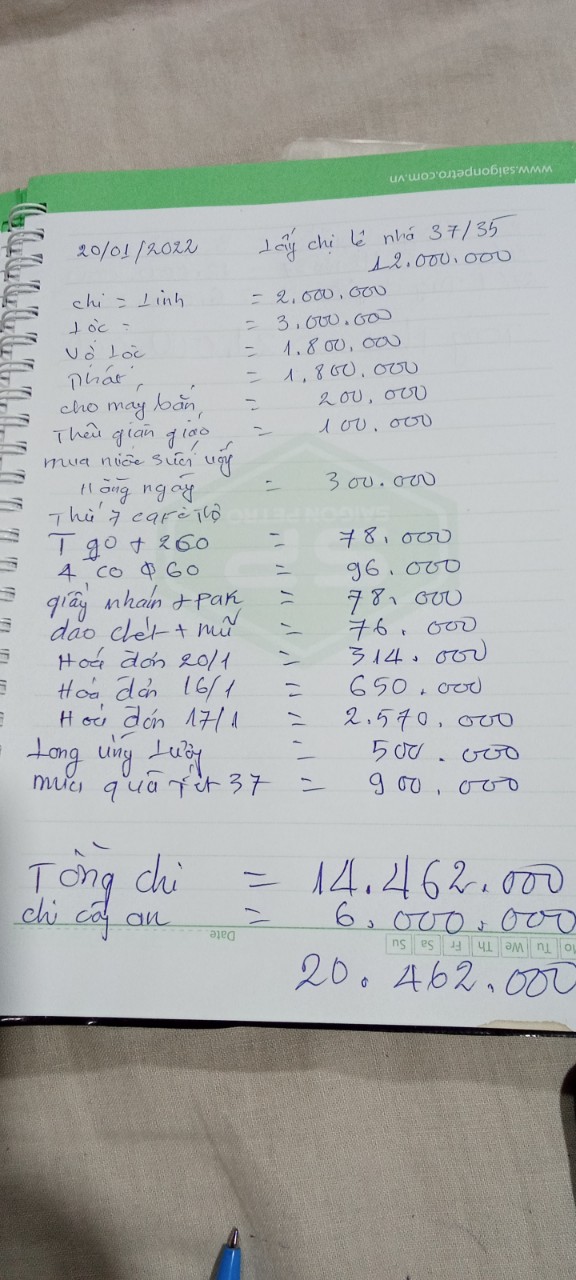 www.saigonpetro.com.vn
20/01/2022 Lấy chị lê nhá 37/35
12.000.000
chi = Linh = 2.000.000
Lôc = = 3.000.000
Vỏ Lôc = 1.800.000
phát, = 1.800.000
cho may bắn, = 200.000
Thêu gian giáo = 100.000
mua nước suối uốy
Hồng ngáy = 300.000
Thứ 7 care
T 90 + 260 = 78.000
4 co φ 60 = 96.000
giấy nhán + pak = 78.000
dao chét + mũ = 76.000
Hoá đơn 20/1 = 314.000
Hoá đơn 16/1 = 650.000
Hoá đơn 17/1 = 2.570.000
Long ứng Lướg = 500.000
mua quà Tết 37 = 900.000
Tổng chi = 14.462.000
chi cấy an = 6.000.000
Date
Mo Tu We Th Fr Sa Su
20.462.000
SAIGON PETRO
SP